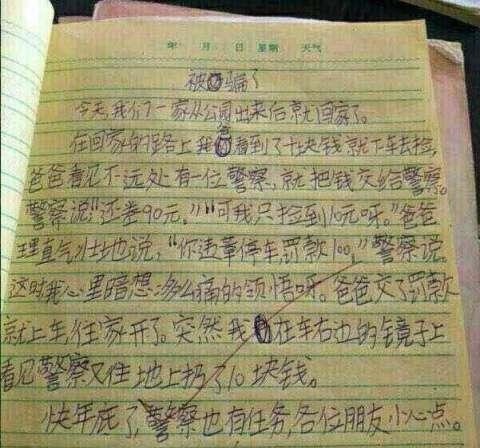 年 月 日 星期 天气
被骗了
今天,我们一家从公园出来后就回家了。
在回家的路上我爸看到了十块钱,就下车去捡,
爸爸看见不远处有一位警察,就把钱交给警察。
警察说“还差90元。”“可我只捡到10元呀。”爸爸
理直气壮地说,“你违章停车罚款100,”警察说
这时我心里暗想:多么痛的领悟呀。爸爸交了罚款
就上车,往家开了。突然我在车右边的镜子上
看见警察又往地上扔了10块钱。
快年底了,警察也有任务,各位朋友小心点。